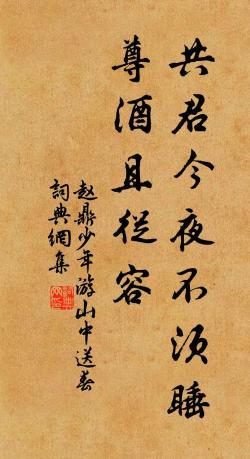 共君今夜不须睡
尊酒且從容
赵鼎少年游山中送春
詞典網集